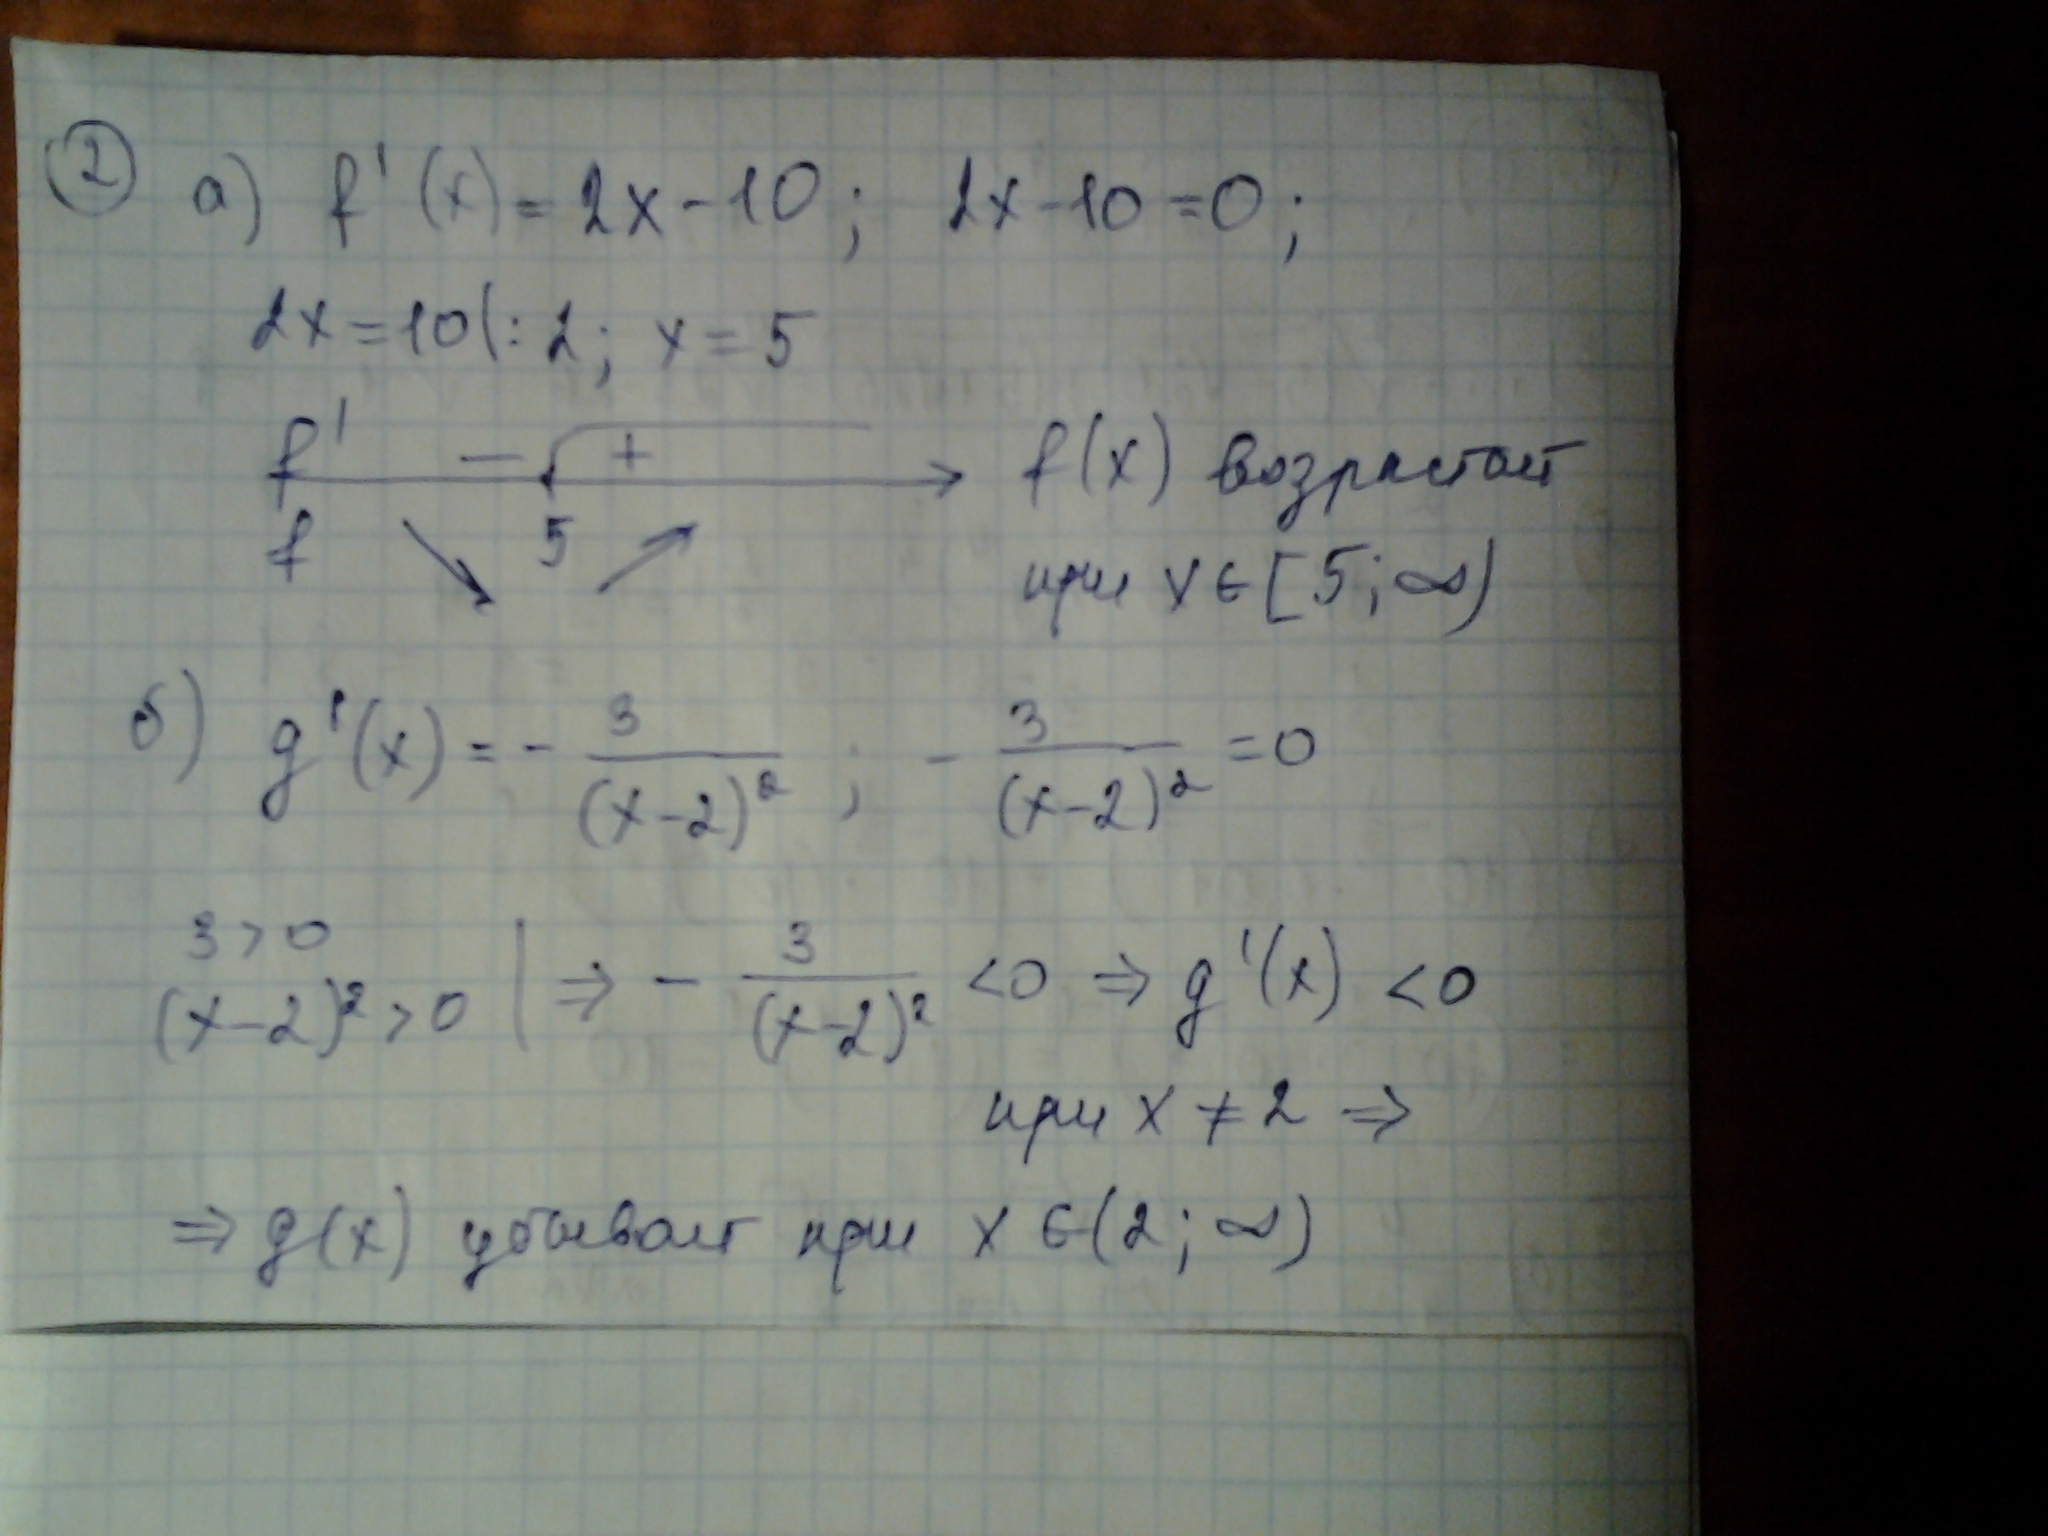 2 а) f'(x) = 2x - 10; 2x - 10 = 0;
2x = 10 |: 2; x = 5
f' − + f(x) возрастает
f 5 при x ∈ [5; ∞)
б) g'(x) = - 3/(x-2)²; - 3/(x-2)² = 0
3 > 0
(x-2)² > 0 | ⇒ - 3/(x-2)² < 0 ⇒ g'(x) < 0
при x ≠ 2 ⇒
⇒ g(x) убывает при x ∈ (2; ∞)